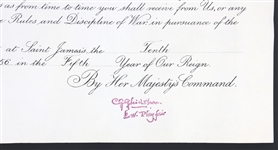 as from time to time you shall receive from Us, or any
Rules and Discipline of War in pursuance of the
at Saint James's, the Tenth
56. in the Fifth Year of Our Reign
By Her Majesty's Command.